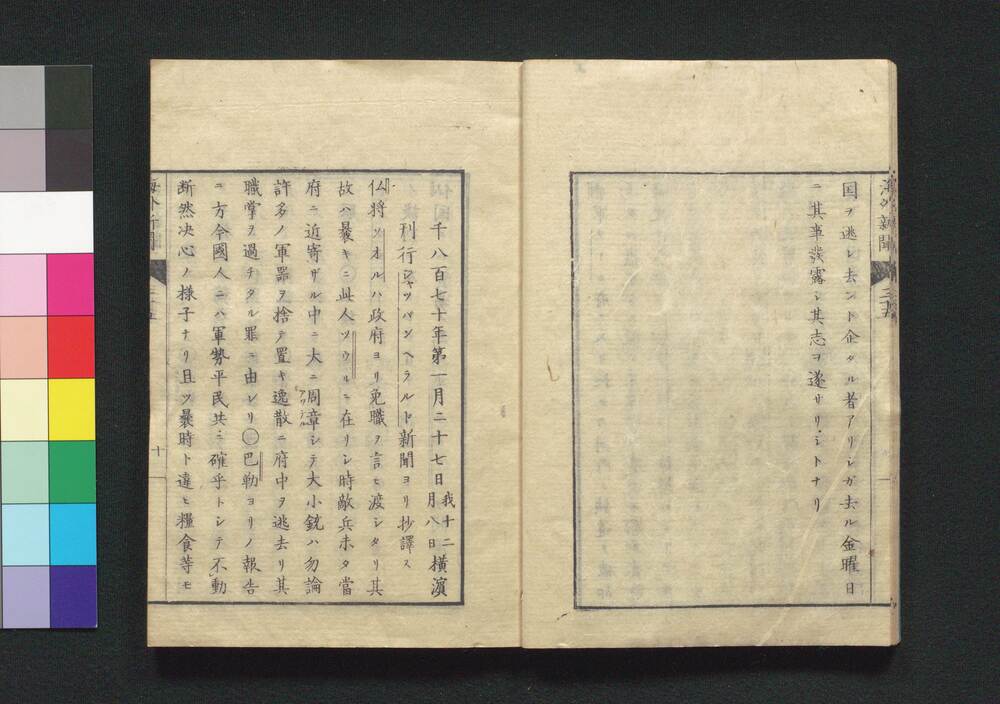 海外新聞
三十五
国ヲ逃レ去ント企タル者アリシガ去ル金曜日
ニ其事発露シ其志ヲ遂サリシトナリ
千八百七十年第一月二十七日我十二月八日橫濵
刊行ジャッパンヘラルド新聞ヨリ抄譯ス
仏将ツオルハ政府ヨリ免職ヲ言ヒ渡シタリ其
故ハ曩キニ此人ツウルニ在リシ時敵兵未タ當
府ニ近寄ザル中ニ大ニ周章シテ大小銃ハ勿論
アワテル
許多ノ軍器ヲ捨テ置キ逸散ニ府中ヲ逃去リ其
職掌ヲ過チタル罪ニ由レリ〇巴勒ヨリノ報告
ニ方今國人ニハ軍勢平民共ニ確乎トシテ不動
断然决心ノ様子ナリ且ツ曩時ト違ヒ糧食等モ
十